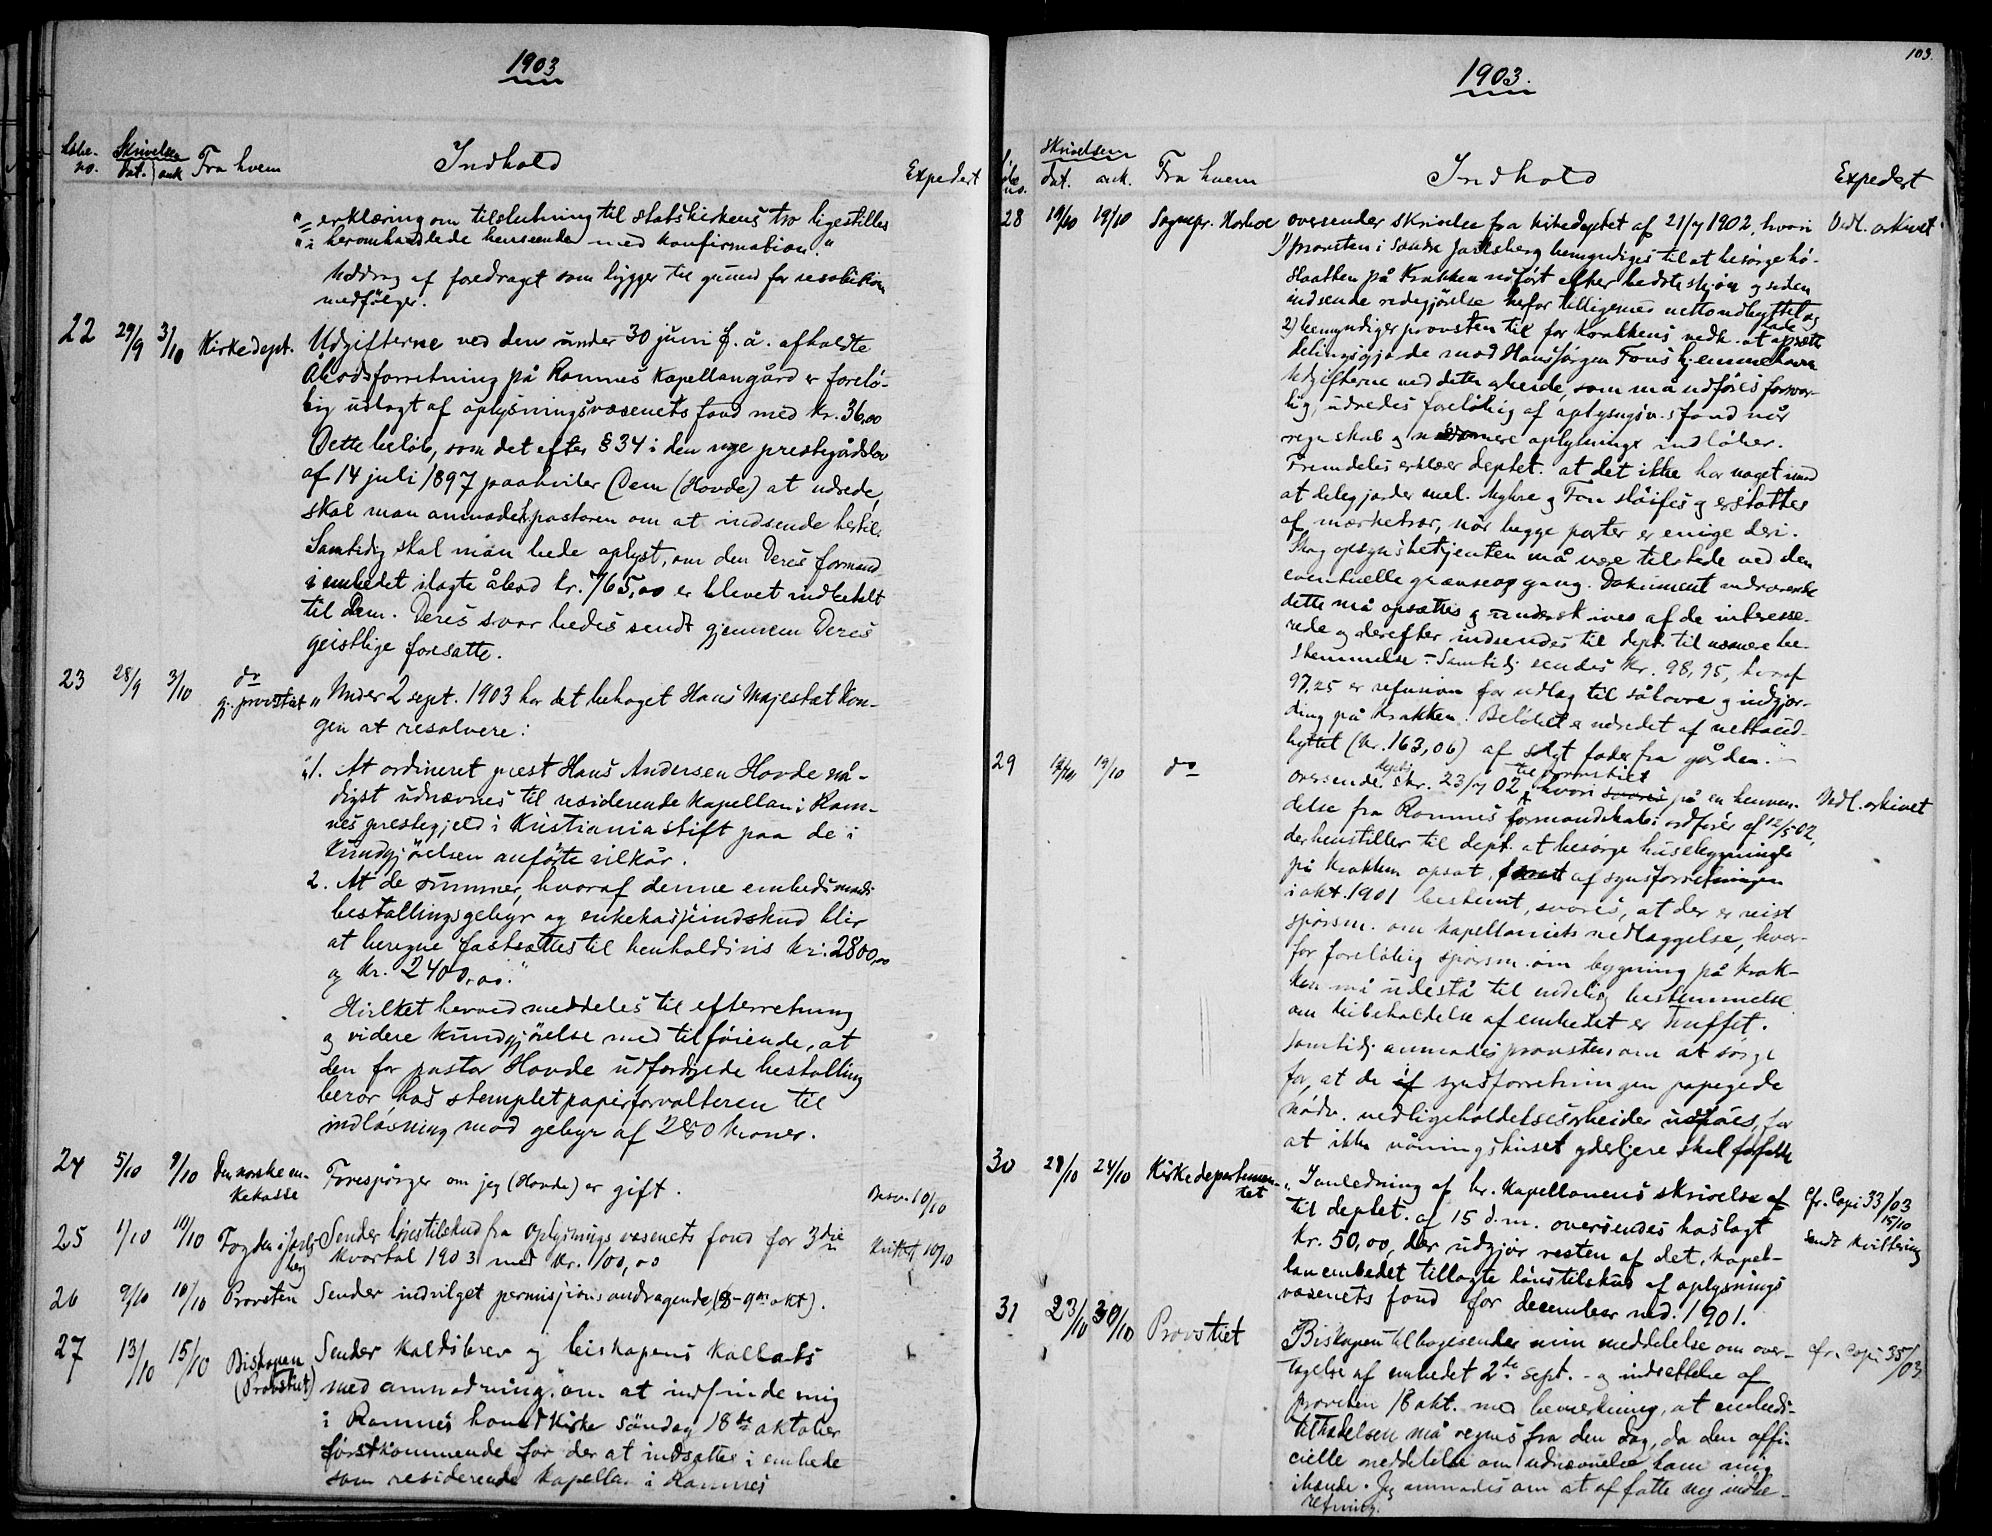 1903
Løbe-
no.
Skrivelsen
dat. | ank
Fra hvem
Indhold
Expedert
"= erklæring om tilslutning til statskirkens tro ligestilles
"i heromhandlede henseende med konfirmation."
Uddrag af foredraget som ligger til grund for resolution
medfølger.
22 29/9 3/10 Kirkedept. Udgifterne ved den under 30 juni f. å. afholdte
Åbodsforretning på Ramnes Kapellangård er forelø-
big udlagt af oplysningsvæsenets fond med kr. 36,00
Dette beløb, som det efter § 34 i den nye prestegårdslov
af 14 juli 1897 paahviler Dem (Hovde) at udrede,
skal man anmode pastoren om at indsende hertil.
Samtidig skal man bede oplyst, om den Deres formand
i embedet ilagte åbod kr. 765,00 er blevet indbetalt
til Dem. Deres svar bedes sendt gjennem Deres
geistlige foresatte.
23 28/9 3/10 do
gj. provstiet
"Under 2 sept. 1903 har det behaget Hans Majestæt Kon-
gen at resolvere:
"1. At ordineret prest Hans Andersen Hovde nå-
digst udnævnes til residerende kapellan i Ram-
nes prestegjeld i Kristiania stift paa de i
Kundgjørelsen anførte vilkår.
2. At de summer, hvoraf denne embedsmands
bestallingsgebyr og enkekasseindskud blir
at beregne fastsættes til henholdsvis kr: 2800,00
og kr. 2400,00."
Hvilket herved meddeles til efterretning
og videre kundgjørelse med tilføiende, at
den for pastor Hovde udfærdigede bestalling
beror hos stempletpapirforvalteren til
indløsning mod gebyr af 280 kroner.
24 5/10 9/10 Den norske en-
kekasse
Forespørger om jeg (Hovde) er gift.
Besv. 10/10
25 1/10 10/10 Fogden i Jarls-
berg
Sender lønstilskud fra Oplysningsvæsenets fond for 3die
kvartal 1903 med kr. 100,00
Kvittet 10/10
26 9/10 10/10 Provsten Sender indvilget permissionsandragende (8-9de okt).
27 13/10 15/10 Biskopen
(Provstiet)
Sender kaldsbrev og biskopens kollats
med anmodning om at indfinde mig
i Ramnes hovedkirke søndag 18de oktober
førstkommende for der at indsættes i embede
som residerende kapellan i Ramnes
103.
1903.
Løbe
no.
Skrivelsen
dat. ank.
Fra hvem
Indhold
Expedert
28 19/10 19/10 Sognepr. Horhoe oversender skrivelse fra kirkedeptet af 21/7 1902, hvori
Vedl. arkivet
1) provsten i Søndre Jarlsberg bemyndiges til at besørge hø-
slaatten på Krakken udført efter bedste skjøn og siden
indsende redegjørelse herfor tilligemed nettoudbyttet og
2) bemyndiger provsten til for Krakkens vedk. at lade opsætte
delingsgjærde mod Hans Jørgen Fons hjemmehavn
Udgifterne ved dette arbeide, som må udføres forsvar-
lig, udredes foreløbig af oplysngsv.s fond når
regnskab og nærmere oplysninger indløber.
Fremdeles erklærer deptet. at det ikke har noget imod
at delegjærder mel. Myhre og Fon sløifes og erstattes
af mærketrær, når begge parter er enige deri.
Skogopsynsbetjenten må være tilstede ved den
eventuelle grænseopgang. Dokument vedrørende
dette må opsættes og underskrives af de interesse-
rede og derefter indsendes til dept. til nærmere be-
stemmelse - Samtidig sendes kr. 98,95, hvoraf
97,25 er refusion for udlæg til såkorn og indgjær-
ding på Krakken. Beløbet er udredet af nettoud-
byttet (kr. 163,06) af solgt foder fra gården."
29 19/10 19/10 do oversender deptets skr. 23/7 02 til provstiet hvori svares på en henven-
Vedl. arkivet
delse fra Ramnes formandskabs ordfører af 12/5 02,
der henstiller til dept. at besørge husebygninger
på Krakken opsat, af synsforretningen
i okt. 1901 bestemt, svares, at der er reist
spørsm. om kapellaniets nedlæggelse, hvor-
for foreløbig spørsm. om bygning på Krak-
ken må udestå til endelig bestemmelse
om bibeholdelse af embedet er truffet.
Samtidig anmodes provsten om at sørge
for, at de af synsforretningen påpegede
nødv. vedligeholdelsesarbeider udføres, for
at ikke våningshuset yderligere skal forfalde
30 21/10 24/10 Kirkedepartemen-
tet
"I anledning af hr. kapellanens skrivelse af
til deptet. af 15 d.m. oversendes hoslagt
kr. 50,00, der udgjør resten af det, kapel-
lanembedet tillagte lønstilskud af oplysnings
væsenets fond for december md. 1901.
cfr. Copi 33/03
15/10
sendt kvittering
31 23/10 30/10 Provstiet Biskopen tilbagesender min meddelelse om over-
tagelse af embedet 2de sept. - og indsættelse af
provsten 18 okt. med bemerkning, at embeds-
tiltrædelsen må regnes fra den dag, da den offi-
cielle meddelelse om udnævnelse kom mig
ihænde. Jeg anmodes om at affatte ny indbe-
retning.
cfr. Copi 35/03